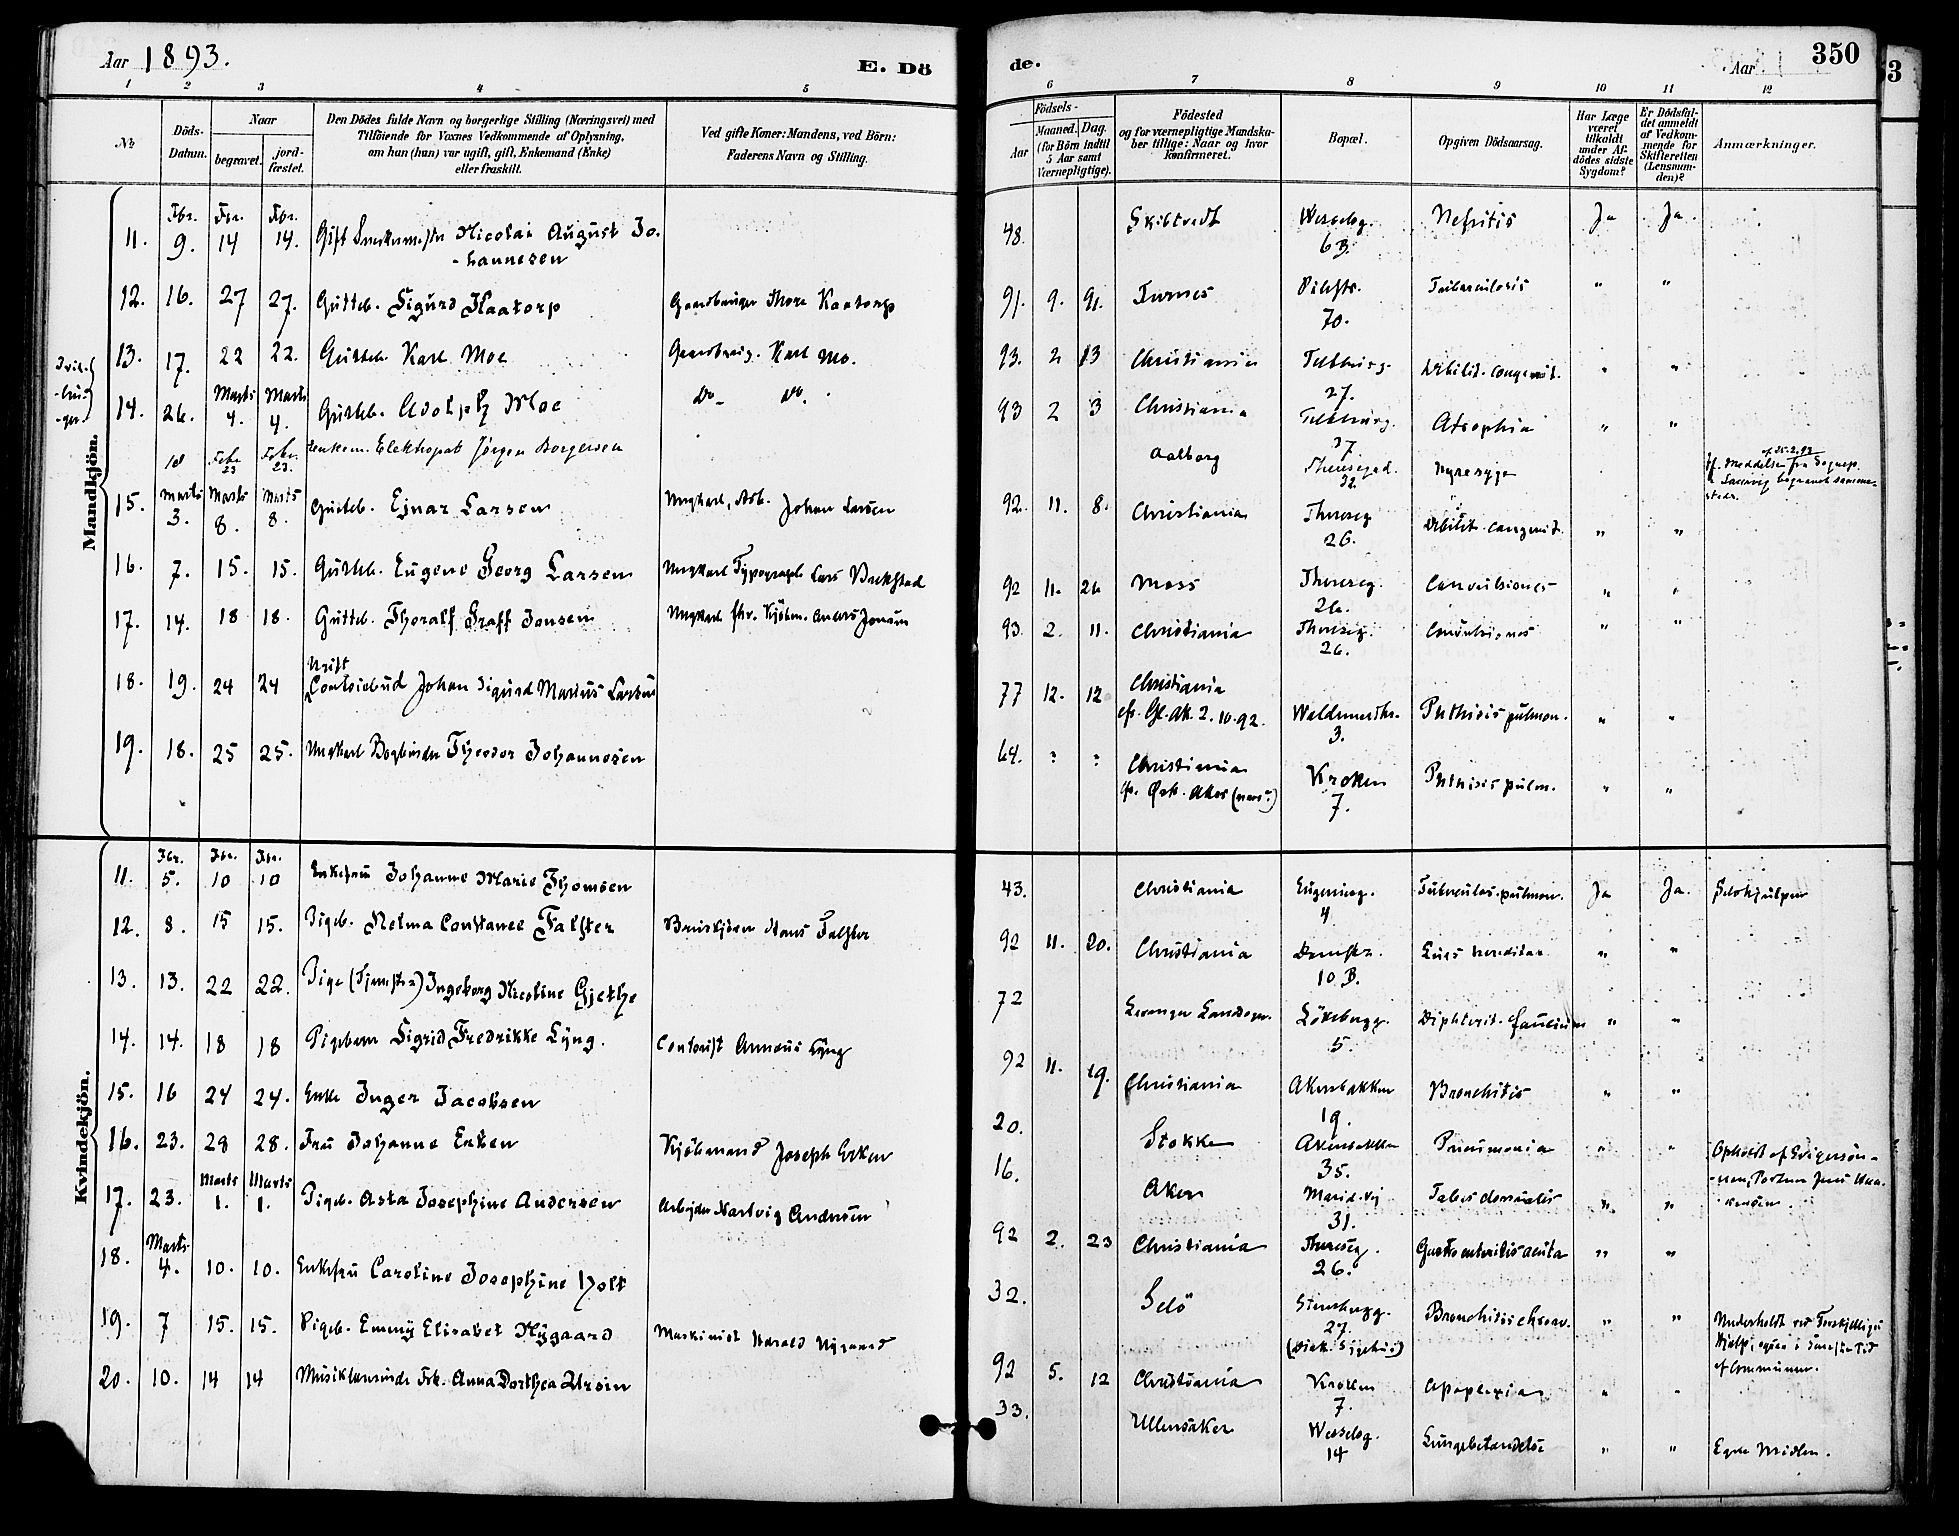 Aar 1893. E. Dö
1 2 3 4 5
No
Döds-Datum.
Naar
begravet.
jord-fæstet.
Den Dödes fulde Navn og borgerlige Stilling (Næringsvei) med
Tilföiende for Voxnes Vedkommende af Oplysning,
om han (hun) var ugift, gift, Enkemand (Enke)
eller fraskilt.
Ved gifte Koner: Mandens, ved Börn:
Faderens Navn og Stilling.
Mandkjön.
Fbr. Fbr. Fbr.
11. 9. 14 14. Gift Nicolai August Jo-
-hannesen
12. 16. 27 27. Gutteb. Sigurd Kaatorp Gaardbruger Thore Kaatorp
13. 17. 22 22. Gutteb. Karl Moe Karl Mo.
Marts Marts
14. 26. 4. 4. Gutteb. Adolph Moe Do- Do.
18 Febr 23 Febr. 23. Jørgen Borgersen
Marts Marts Marts
15. 3. 8. 8. Gutteb. Ejnar Larsen Ungkarl, Arb. Johan Larsen
16. 7. 15. 15. Gutteb. Eugene Georg Larsen Ungkarl Typograph Lars
17. 14. 18 18. Gutteb. Thoralf Graff Jonsen Ungkarl Anders Jonsen
Ugift
18. 19. 24 24 Contoirbud Johan Sigurd Marius Larsen
19. 18. 25 25. Ungkarl Bogbinder Theodor Johannesen
Kvindekjön.
Fbr. Fbr. Fbr.
11. 5. 10 10 Enkefru Johanne Marie Thomsen
12. 8. 15 15. Pigeb. Nelma Constance Falster Hans Falster
13. 13. 22 22. Pige Ingeborg Nicoline Gjethe
14. 14. 18 18 Pigebarn Sigrid Fredrikke Lyng. Contorist Lyng
15. 16 24 24. Enke Inger Jacobsen
16. 23. 28 28. Fru Johanne Erken Kjöbmand Joseph Erken
Marts Marts
17. 23. 1. 1. Pigeb. Asta Josephine Andersen Arbejder Hartvig Andersen
Marts
18. 4. 10. 10. Enkefru Caroline Josephine Holt
19. 7 15. 15. Pigeb. Emmy Elisabet Nygaard Maskinist Harald Nygaard
20. 10. 14 14 Musiklærerinde Frk. Anna Dorthea Ursin
de. Aar 350
6 7 8 9 10 11 12
Födsels-
Aar
Maaned. Dag.
(for Börn indtil
5 Aar samt
Værnepligtige).
Födested
og for værnepligtige Mandska-
ber tillige: Naar og hvor
konfirmeret.
Bopæl.
Opgiven Dödsaarsag.
Har Læge
været
tilkaldt
under Af-
dödes sidste
Sygdom?
Er Dödsfal-
det anmeldt
af Vedkom-
mende for
Skifteretten
(Lensman-
den)?
Anmærkninger.
48. Skibtvedt Wesselsg. 63. Nefritis Ja Ja.
91. 9. Furnes Pilestr. 70. Tuberculosis " "
93. 2 13 Christiania 27. Debilit. congenit. " "
93 2 3 Christiania 27 Atrophia " "
Aalborg Theresegd. 32. Nyresyge
92. 11. 8. Christiania Thereseg 26. Debilit. congenit. " "
92 11. 26 Moss Thereseg. 26. Convulsiones " "
93. 2. 11. Christiania Thereseg. 26. Convulsiones " "
77 12. 12 Christiania
Gl. Ak. 2. 10. 92. Waldemarthr. 3. Phthisis pulmon. " "
64. Christiania
Aker Kroken 7. Phthisis pulm. " "
43. Christiania Eugenieg. 4 Tuberculos. pulmon. Ja Ja. Selvhjulpen
92 11. 20. Christiania 10 B. Lues hereditar " "
72 Levanger Landsogn. Lökebergg. 5. Diphterit. faucium " "
92 11. 19. Christiania Akersbakken 19. Bronchitis " "
20. Stokke Akersbakken 35. Pneumonia " "
16. Aker Marid. vj 31. Tabes dorsualis " "
92 2. 23 Christiania Thereseg. 26. Gastroenteritis acuta " "
32. Selö Stensbergg. 27. Bronchitis chron. " "
(Diak. Sygehus)
92 5. 12 Christiania Kroken 7. Apoplexia " "
33. Ullensaker Wesselsg. 14 Lungebetændelse " " Egne Midler.